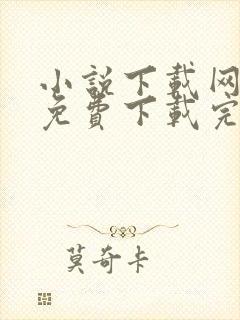 小說下載网
免費下載完
莫奇卡